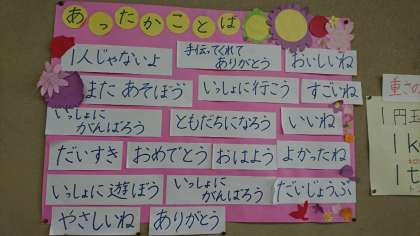 あったかことば
1人じゃないよ
手伝ってくれて
ありがとう
おいしいね
またあそぼう
いっしょに行こう
すごいね
いっしょに
がんばろう
ともだちになろう
いいね
だいすき
おめでとう
おはよう
よかったね
いっしょに遊ぼう
いっしょに
がんばろう
だいじょうぶ
やさしいね
ありがとう
重さの
1円玉
1k
1t